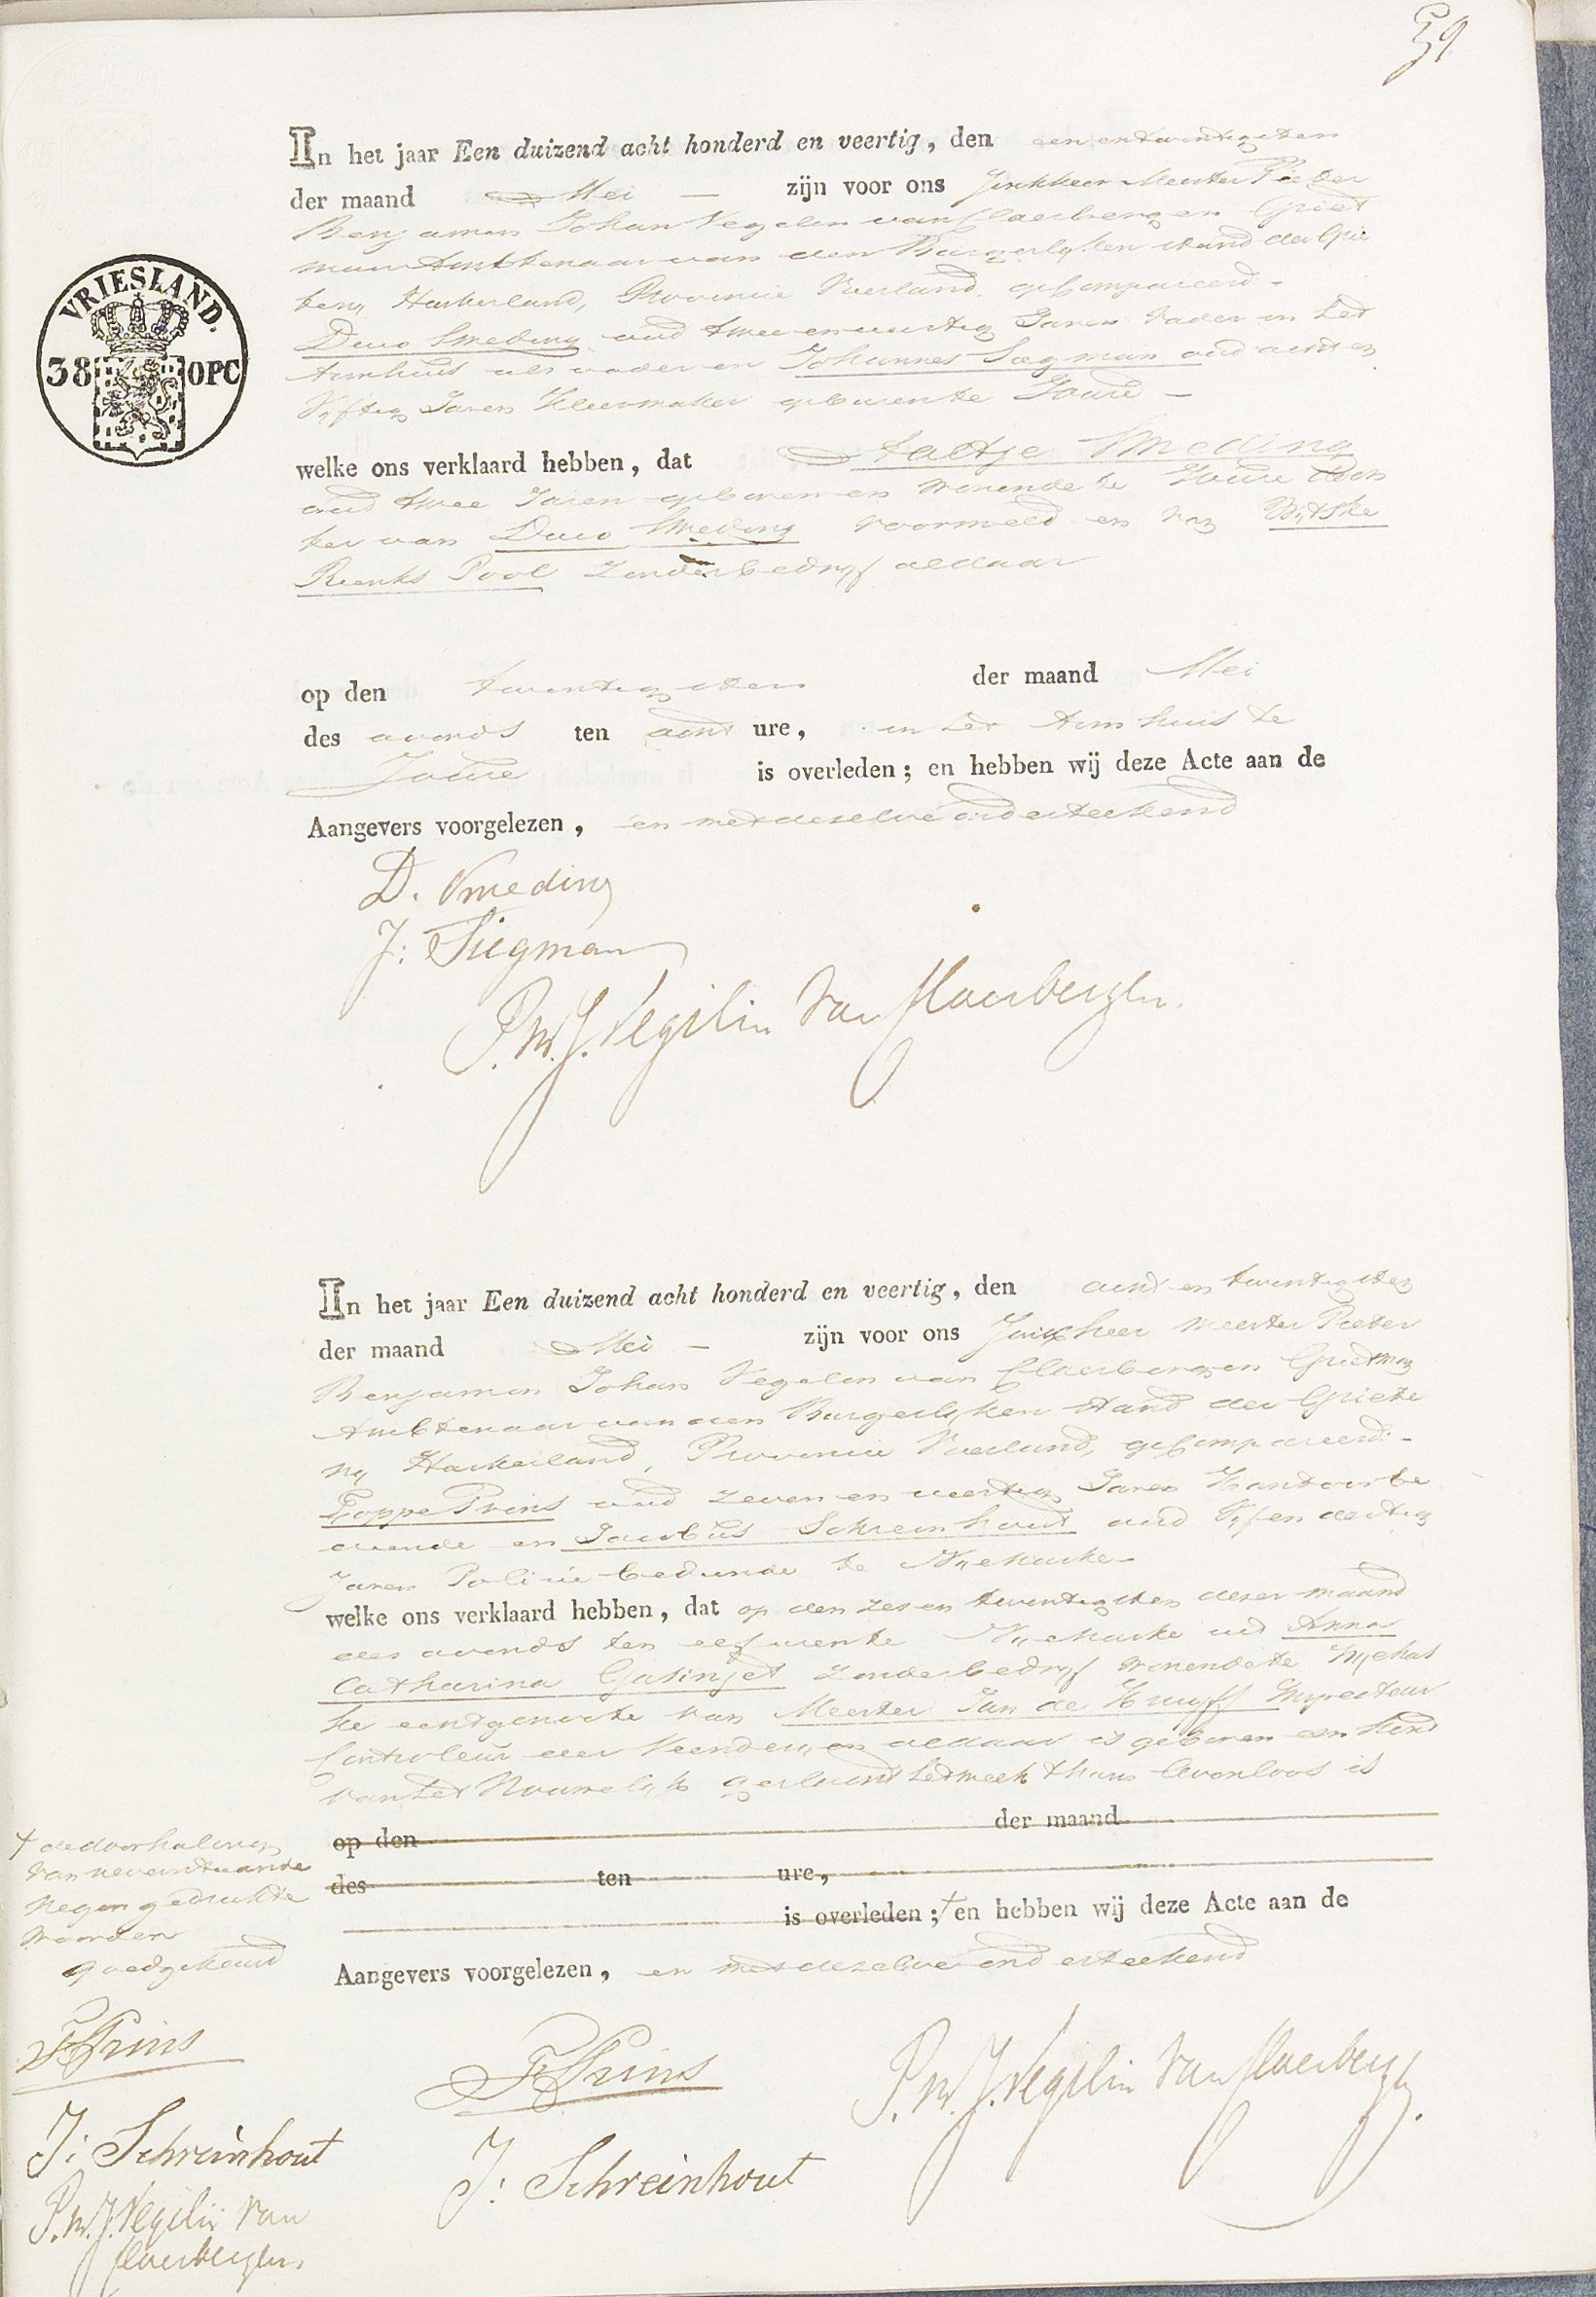 59
VRIESLAND.
38 OPC
In het jaar Een duizend acht honderd en veertig, den een en twintigsten
der maand Mei — zijn voor ons Jonkheer Meester Pieter
Benjamin Johan Vegelin van Claerbergen Griet
man Ambtenaar van den Burgerlyken stand der Grie
teny Haskerland, Provincie Vriesland gecompareerd -
Duco Smeding oud twee en veertig Jaren Vader in het
Armhuis als vader en Johannes Siegman oud acht en
Vyftig Jaren Kleermaker geburen te Joure —
welke ons verklaard hebben, dat Aaltje Smeding
oud twee Jaren geboren en wonende te Joure Doch
ter van Duco Smeding voormeld en van Witske
Rienks Pool zonder bedryf aldaar
op den twintigsten der maand Mei
des avonds ten acht ure, in het Armhuis te
Joure is overleden; en hebben wij deze Acte aan de
Aangevers voorgelezen, en met dezelve onderteekend
D. Smeding
J: Siegman
P. B. J. Vegilin van Claerbergen.
In het jaar Een duizend acht honderd en veertig, den acht en twintigsten
der maand Mei — zijn voor ons Jonkheer Meester Pieter
Benjamin Johan Vegelin van Claerbergen Grietman
Ambtenaar van den Burgerlyken Stand der Griete
ny Haskerland, Provincie Vriesland, gecompareerd -
Foppe Prins oud zeven en veertig Jaren Kantoorbe
diende en Jacobus Schreinhout oud Vyf en dertig
Jaren Policie bediende te Nyehaske -
welke ons verklaard hebben, dat op den zes en twintigsten dezer maand
des avonds ten elf ure te Nyehaske uit Anna
Catharina Gasinjet zonder bedryf wonende te Nyehas
ke echtgenoote van Meester Jan de Kruyff Inspecteur
Controleur der Veenderyen aldaar is geboren een kind
van het Vrouwelyk geslacht hetwelk thans levenloos is
op den der maand
des ten ure,
is overleden; + en hebben wij deze Acte aan de
Aangevers voorgelezen, en met dezelve onderteekend
+ de doorhaling
van nevenstaande
negen gedrukte
woorden
goedgekeurd
F Prins
J: Schreinhout
P. B. J. Vegilin van
Claerbergen
F Prins
J: Schreinhout
P. B. J. Vegilin van Claerbergen.